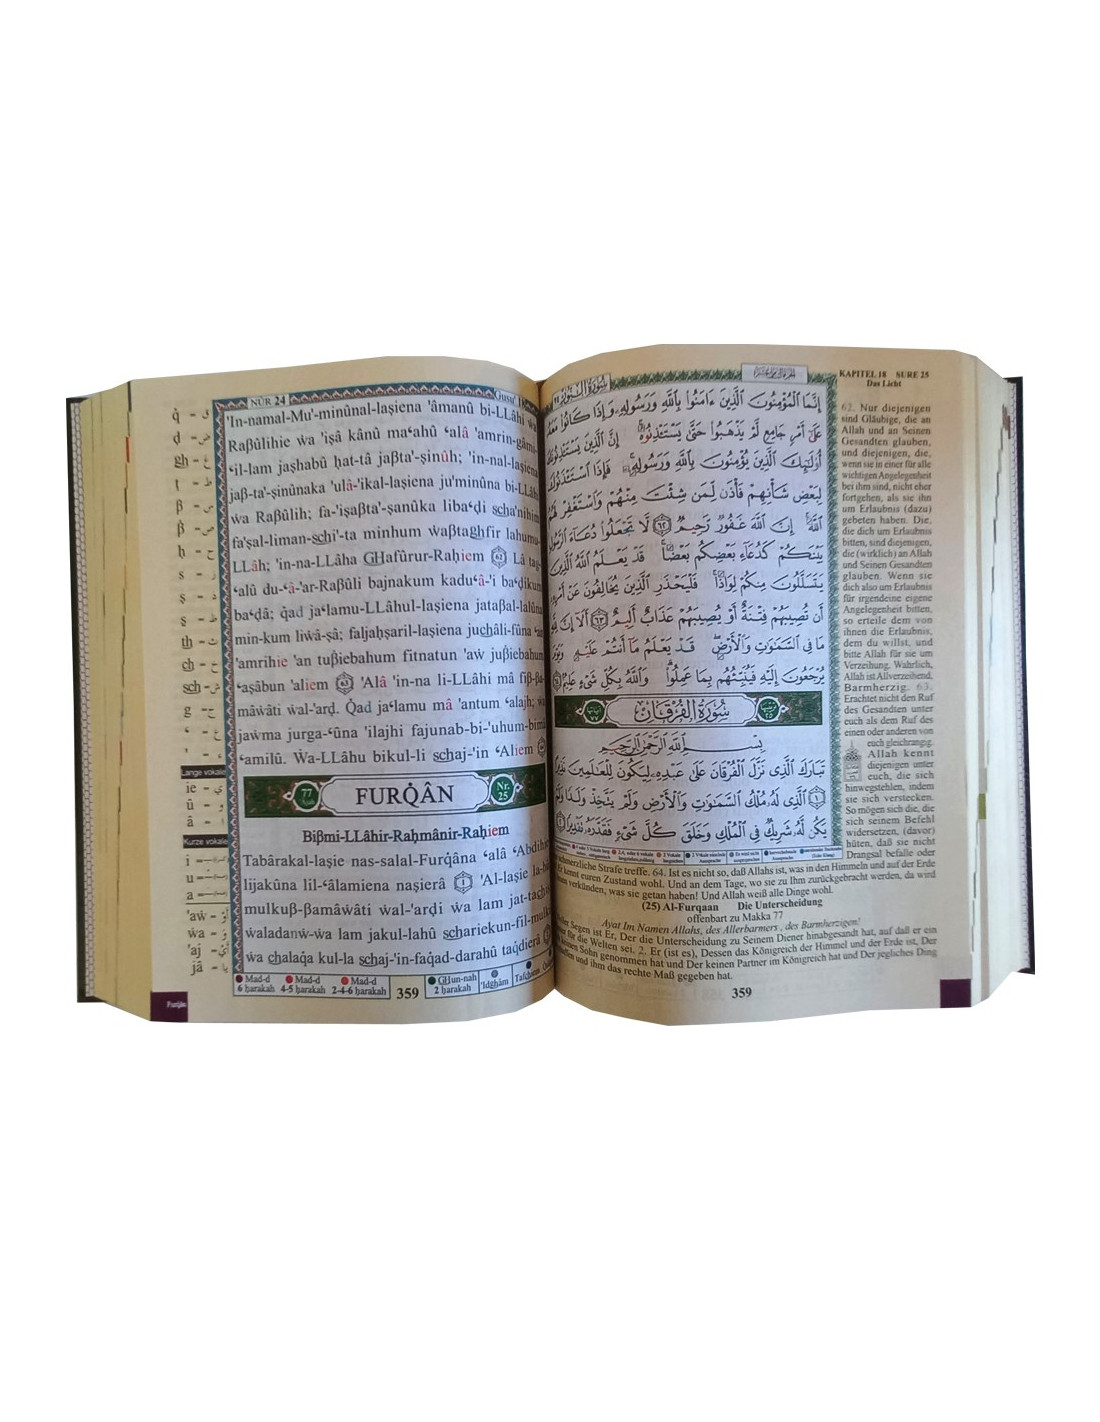 NÛR 24
Ǧusu' 18
'In-namal-Mu'-minûnal-laşiena 'âmanû bi-LLâhi ẇa
Raβûlihie ẇa 'işâ kânû ma‘ahû ‘alâ 'amrin-ǧâmi-
‘il-lam jaşhabû ḥat-tâ jaβta'-şinûh; 'in-nal-laşiena
jaβ-ta'-şinûnaka 'ulâ-'ikal-laşiena ju'minûna bi-LLâhi
ẇa Raβûlih; fa-'işaβta'-şanûka liba‘ḍi scha'nihim
fa'şal-liman-schi'-ta minhum ẇaβtaghfir lahumu-
LLâh; 'in-na-LLâha GHafûrur-Raḥiem 62 Lâ taǧ-
‘alû du-‘â-'ar-Raβûli bajnakum kadu‘â-'i ba‘ḍikum
ba‘ḍâ; q̇ad ja‘lamu-LLâhul-laşiena jataβal-lalûna
min-kum liẇâ-şâ; faljaḥşaril-laşiena juchâli-fûna ‘an
'amrihie 'an tuβiebahum fitnatun 'aẇ juβiebahum
‘aşâbun 'aliem 63 'Alâ 'in-na li-LLâhi mâ fiβ-βa-
mâẇâti ẇal-'arḍ. Q̇ad ja‘lamu mâ 'antum ‘alajh; ẇa
jaẇma jurga-‘ûna 'ilajhi fajunab-bi-'uhum-bimâ
‘amilû. Ẇa-LLâhu bikul-li schaj-'in ‘Aliem
77
FURQ̇ÂN
Nr. 25
Biβmi-LLâhir-Raḥmânir-Raḥiem
Tabârakal-laşie nas-salal-Furq̇âna ‘alâ ‘Abdihie
lijakûna lil-‘âlamiena naşierâ 1 'Al-laşie la-hû
mulkuβ-βamâẇâti ẇal-'arḍi ẇa lam jat-tachiş
ẇaladaṅẇ-ẇa lam jakul-lahû schariekun-fil-mulki
ẇa chalaq̇a kul-la schaj-'in-faq̇ad-darahû taq̇dierâ
Mad-d 6 ḥarakah
Mad-d 4-5 ḥarakah
Mad-d 2-4-6 ḥarakah
GHun-nah 2 ḥarakah
'Idghâm
359
q̇ - ق
ḍ - ض
gh - غ
ṭ - ط
β - س
β̣ - ص
ḥ - ح
s - ز
ş - ذ
ṣ - ظ
th - ث
ch - خ
sch - ش
g - ج
‘ - ع
' - ء
Lange vokale
ie - ي
û - و
â - ا
Kurze vokale
i
u
a
'aẇ - أو
ẇa - و
'aj - أي
jâ - يا
Furqân
سورة النور ٢٤
الجزء الثامن عشر
إِنَّمَا الْمُؤْمِنُونَ الَّذِينَ ءَامَنُوا بِاللَّهِ وَرَسُولِهِ وَإِذَا كَانُوا مَعَهُ
عَلَىٰ أَمْرٍ جَامِعٍ لَمْ يَذْهَبُوا حَتَّىٰ يَسْتَـْٔذِنُوهُ إِنَّ الَّذِينَ يَسْتَـْٔذِنُونَكَ
أُوْلَـٰئِكَ الَّذِينَ يُؤْمِنُونَ بِاللَّهِ وَرَسُولِهِ فَإِذَا اسْتَـْٔذَنُوكَ
لِبَعْضِ شَأْنِهِمْ فَأْذَن لِّمَن شِئْتَ مِنْهُمْ وَاسْتَغْفِرْ لَهُمُ
اللَّهَ إِنَّ اللَّهَ غَفُورٌ رَّحِيمٌ ٦٢ لَّا تَجْعَلُوا دُعَاءَ الرَّسُولِ
بَيْنَكُمْ كَدُعَاءِ بَعْضِكُم بَعْضًا قَدْ يَعْلَمُ اللَّهُ الَّذِينَ
يَتَسَلَّلُونَ مِنكُمْ لِوَاذًا فَلْيَحْذَرِ الَّذِينَ يُخَالِفُونَ عَنْ أَمْرِهِ
أَن تُصِيبَهُمْ فِتْنَةٌ أَوْ يُصِيبَهُمْ عَذَابٌ أَلِيمٌ ٦٣ أَلَا إِنَّ لِلَّهِ
مَا فِي السَّمَـٰوَٰتِ وَالْأَرْضِ قَدْ يَعْلَمُ مَا أَنتُمْ عَلَيْهِ وَيَوْمَ
يُرْجَعُونَ إِلَيْهِ فَيُنَبِّئُهُم بِمَا عَمِلُوا وَاللَّهُ بِكُلِّ شَيْءٍ عَلِيمٌ
سُورَةُ الْفُرْقَانِ
بِسْمِ اللَّهِ الرَّحْمَٰنِ الرَّحِيمِ
تَبَارَكَ الَّذِي نَزَّلَ الْفُرْقَانَ عَلَىٰ عَبْدِهِ لِيَكُونَ لِلْعَـٰلَمِينَ نَذِيرًا
١ الَّذِي لَهُ مُلْكُ السَّمَـٰوَٰتِ وَالْأَرْضِ وَلَمْ يَتَّخِذْ وَلَدًا وَلَمْ
يَكُن لَّهُ شَرِيكٌ فِي الْمُلْكِ وَخَلَقَ كُلَّ شَيْءٍ فَقَدَّرَهُ تَقْدِيرًا
KAPITEL 18 SURE 25
Das Licht
62. Nur diejenigen
sind Gläubige, die an
Allah und an Seinen
Gesandten glauben,
und diejenigen, die,
wenn sie in einer für alle
wichtigen Angelegenheit
bei ihm sind, nicht eher
fortgehen, als sie ihn
um Erlaubnis (dazu)
gebeten haben. Die,
die dich um Erlaubnis
bitten, sind diejenigen,
die (wirklich) an Allah
und Seinen Gesandten
glauben. Wenn sie
dich also um Erlaubnis
für irgendeine eigene
Angelegenheit bitten,
so erteile dem von
ihnen die Erlaubnis,
dem du willst, und
bitte Allah für sie um
Verzeihung. Wahrlich,
Allah ist Allverzeihend,
Barmherzig. 63.
Erachtet nicht den Ruf
des Gesandten unter
euch als dem Ruf des
einen oder anderen von
euch gleichrangig.
Allah kennt
diejenigen unter
euch, die sich
hinwegstehlen, indem
sie sich verstecken.
So mögen sich die, die
sich seinem Befehl
widersetzen, (davor)
hüten, daß sie nicht
Drangsal befalle oder
schmerzliche Strafe treffe. 64. Ist es nicht so, daß Allahs ist, was in den Himmeln und auf der Erde
kennt euren Zustand wohl. Und an dem Tage, wo sie zu Ihm zurückgebracht werden, da wird
verkünden, was sie getan haben! Und Allah weiß alle Dinge wohl.
(25) Al-Furqaan Die Unterscheidung
offenbart zu Makka 77
Ayat Im Namen Allahs, des Allerbarmers , des Barmherzigen!
Segen ist Er, Der die Unterscheidung zu Seinem Diener hinabgesandt hat, auf daß er ein
für die Welten sei. 2. Er (ist es), Dessen das Königreich der Himmel und der Erde ist, Der
keinen Sohn genommen hat und Der keinen Partner im Königreich hat und Der jegliches Ding
und ihm das rechte Maß gegeben hat.
359